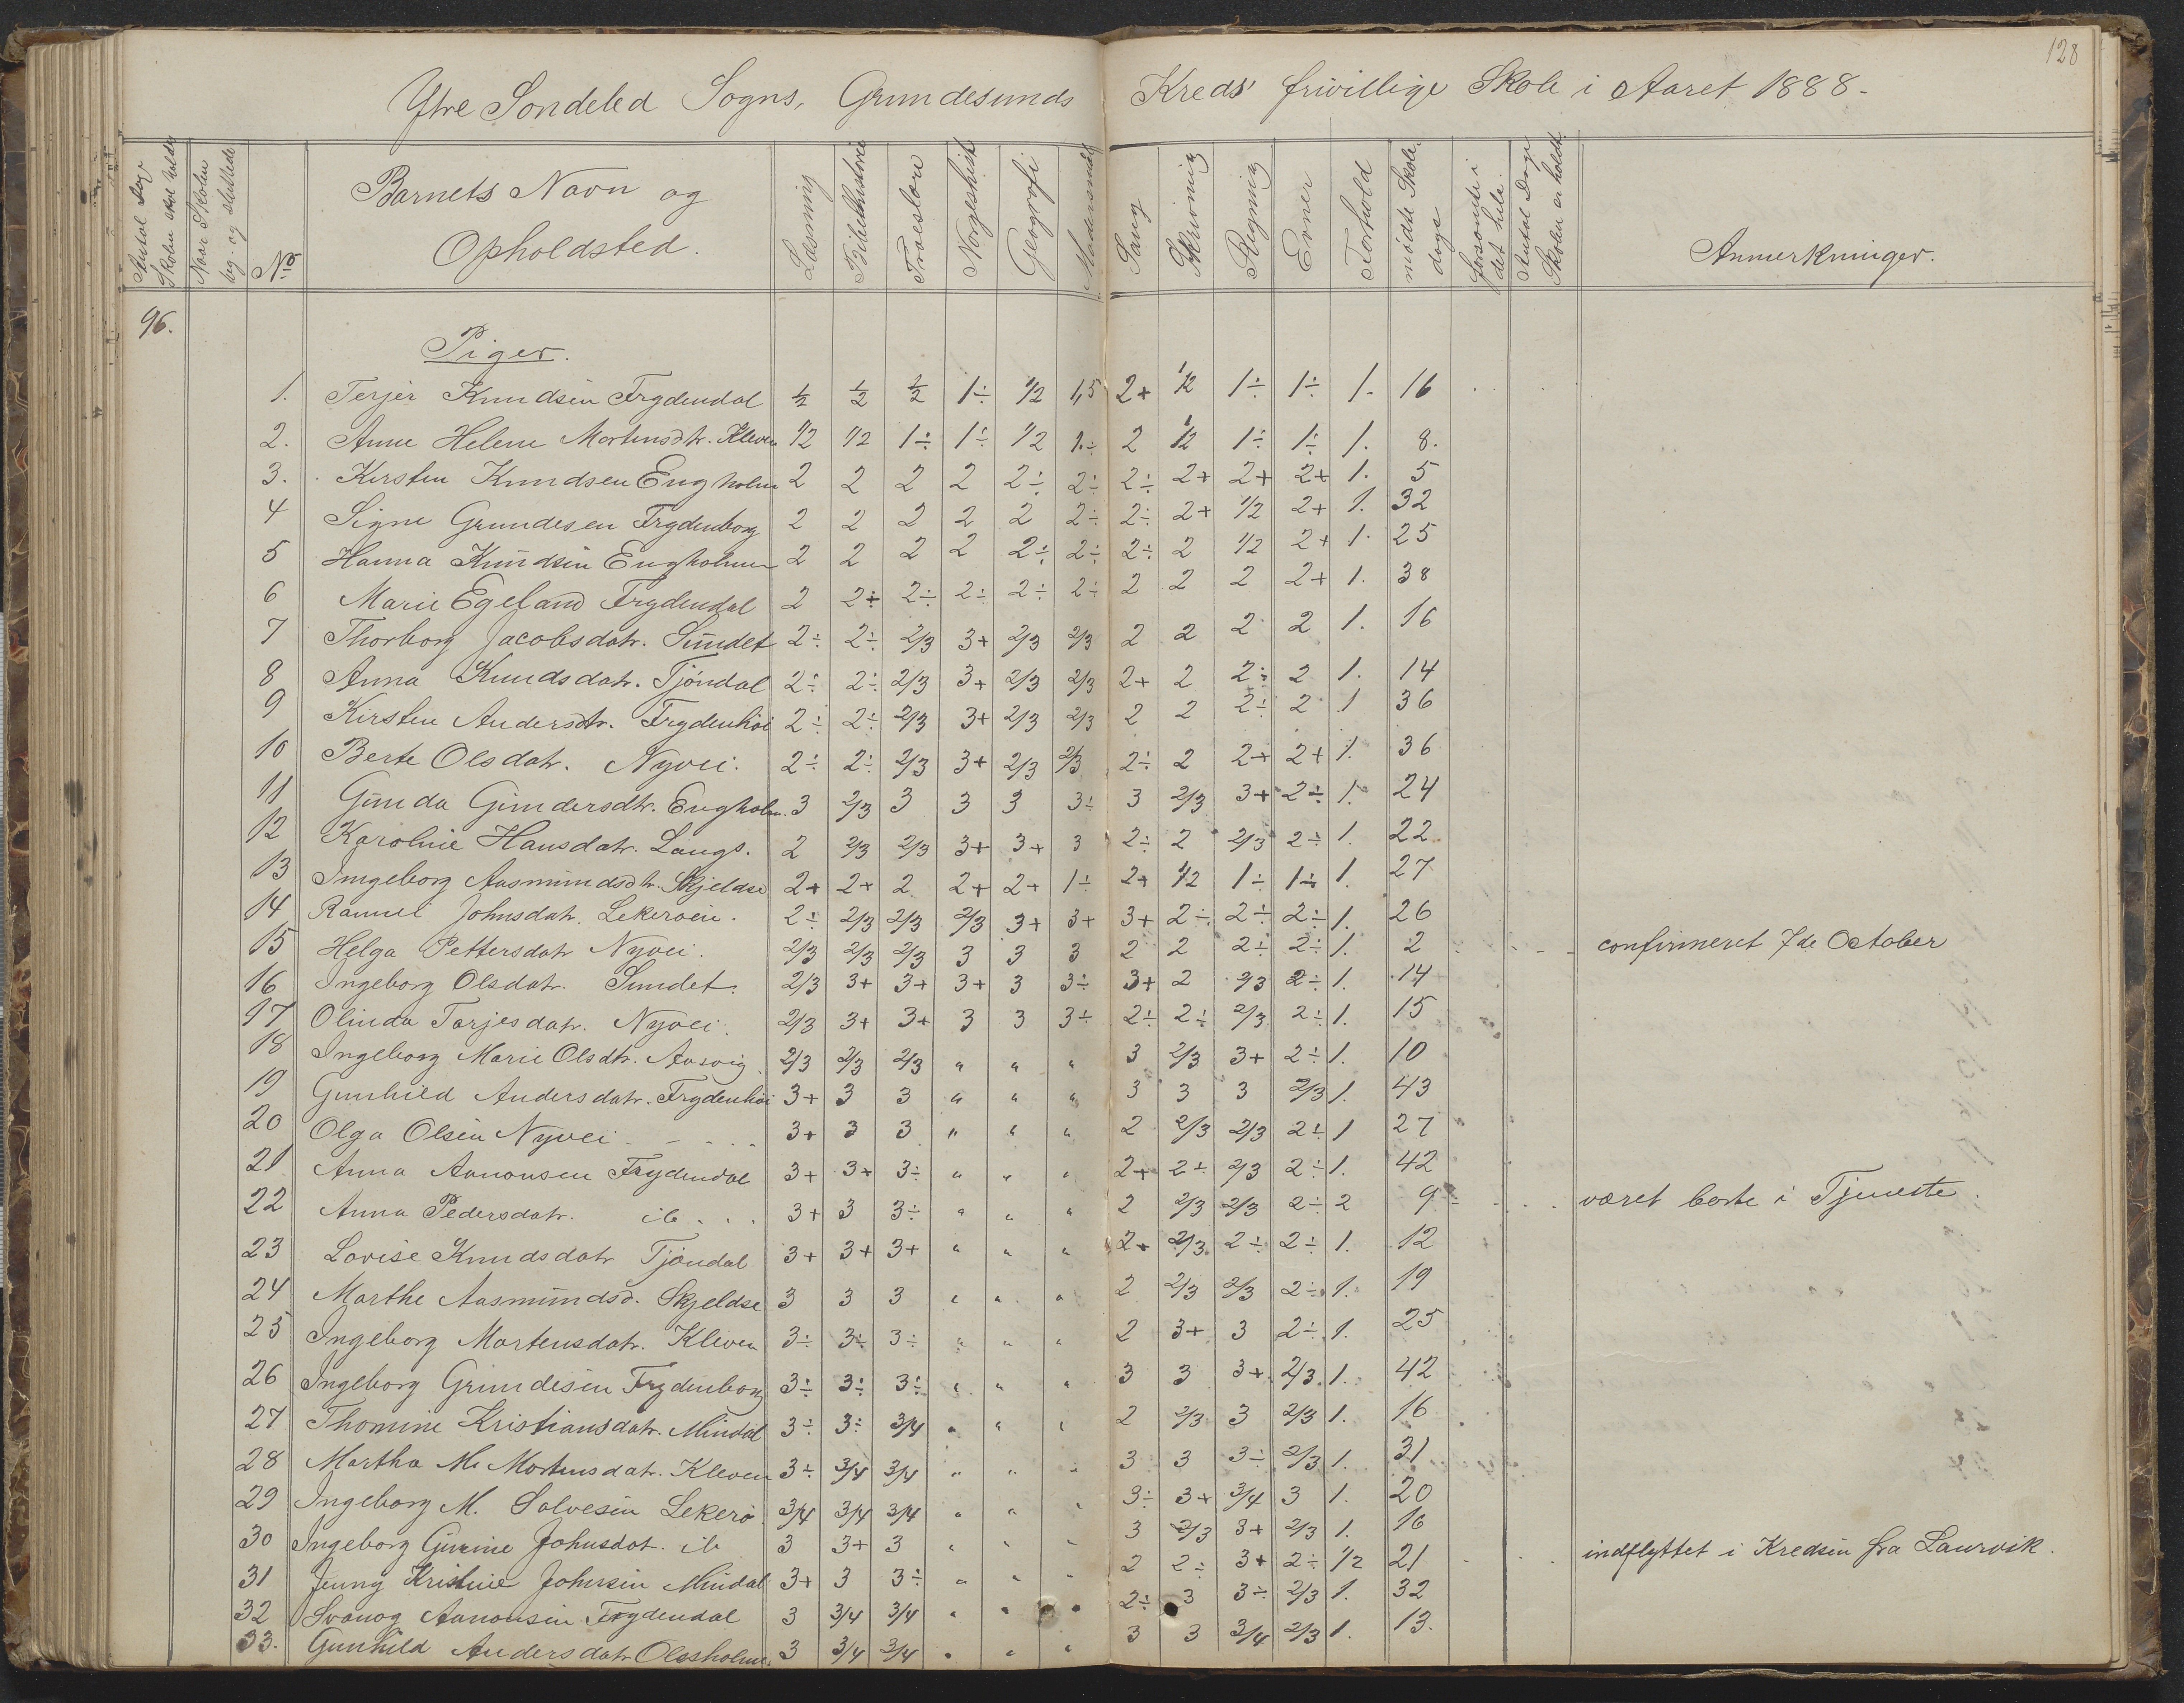 128
Ytre Sondeled Sogns, Grundesunds Kreds' frivillige Skole i Aaret 1888-
Antal Dage Skolen skal holdes
Naar Skolen beg. og sluttede
No
Barnets Navn og Opholdsted.
Læsning
Bibelhistorie
Troeslære
Norgeshist
Geografi
Modersmaal
Sang
Skrivning
Regning
Evner
Forhold
mødte Skoledage
forsømte i det hele.
Antal Dage Skolen er holdt
Anmerkninger.
96.
Piger.
1. Terjer Knudsen Frydendal ½ ½ ½ 1÷ 1/2 1,5 2+ 1/2 1÷ 1÷ 1. 16
2. Anne Helene Mortensdtr. Kleven 1/2 1/2 1÷ 1÷ 1/2 1.÷ 2 1/2 1÷ 1÷ 1. 8.
3. Kirsten Knudsen Engholm 2 2 2 2 2÷ 2÷ 2÷ 2+ 2+ 2+ 1. 5
4 Signe Grundesen Frydenborg 2 2 2 2 2 2÷ 2÷ 2+ 1/2 2+ 1. 32
5 Hanna Knudsen Engholmen 2 2 2 2 2÷ 2÷ 2÷ 2 1/2 2+ 1. 25
6 Marie Egeland Frydendal 2 2÷ 2÷ 2÷ 2÷ 2÷ 2 2 2 2+ 1. 38
7 Thorborg Jacobsdatr. Sundet 2÷ 2÷ 2/3 3+ 2/3 2/3 2 2 2 2 1. 16
8 Anna Knudsdatr. Tjöndal 2÷ 2÷ 2/3 3+ 2/3 2/3 2+ 2 2÷ 2 1. 14
9 Kirsten Andersdtr. Frydenhöi 2÷ 2÷ 2/3 3+ 2/3 2/3 2 2 2÷ 2 1 36
10 Berte Olsdatr. Nyvei. 2÷ 2÷ 2/3 3+ 2/3 2/3 2÷ 2 2+ 2+ 1. 36
11 Gunda Gundersdtr. Engholm. 3 2/3 3 3 3 3÷ 3 2/3 3+ 2÷ 1. 24
12 Karoline Hansdatr. Langs. 2 2/3 2/3 3+ 3+ 3 2÷ 2 2/3 2÷ 1. 22
13 Ingeborg Aasmundsdtr. Skjeldsø 2+ 2+ 2 2+ 2+ 1÷ 2+ 1/2 1÷ 1÷ 1. 27
14 Johnsdatr. Lekeröen. 2÷ 2/3 2/3 2/3 3+ 3+ 3+ 2÷ 2÷ 2÷ 1. 26
15 Helga Pettersdatr Nyvei. 2/3 2/3 2/3 3 3 3 2 2 2÷ 2÷ 1. 2 confirmeret 7de October
16 Ingeborg Olsdatr. Sundet. 2/3 3+ 3+ 3+ 3 3÷ 3+ 2 2/3 2÷ 1. 14
17 Olinda Tarjesdatr. Nyvei. 2/3 3+ 3+ 3 3 3÷ 2÷ 2÷ 2/3 2÷ 1. 15
18 Ingeborg Marie Olsdtr. Aasvig. 2/3 2/3 2/3 " " " 3 2/3 3+ 2÷ 1. 10
19 Gunhild Andersdatr. Frydenhöi 3+ 3 3 " " " 3 3 3 2/3 1. 43
20 Olga Olsen Nyvei 3+ 3 3 " " " 2 2/3 2/3 2÷ 1 27
21 Anna Aanonsen Frydendal 3+ 3+ 3÷ " " " 2+ 2÷ 2/3 2÷ 1. 42
22 Anna Pedersdatr. ib 3+ 3 3÷ " " " 2 2/3 2/3 2÷ 2 9 været borte i Tjeneste.
23 Lovise Knudsdatr Tjöndal 3+ 3+ 3+ " " " 2+ 2/3 2÷ 2÷ 1. 12
24 Marthe Aasmundsd. Skjeldsø 3 3 3 " " " 2 2/3 2/3 2÷ 1. 19
25 Ingeborg Mortensdatr. Kleven 3÷ 3÷ 3÷ " " " 2 3+ 3 2÷ 1. 25
26 Ingeborg Grundesen Frydenborg 3÷ 3÷ 3÷ " " " 3 3 3+ 2/3 1. 42
27 Thomine Kristiansdatr. Mindal 3÷ 3÷ 3/4 " " " 2 2/3 3 2/3 1. 16
28 Martha M. Mortensdatr. Kleven 3÷ 3/4 3/4 " " " 3 3 3÷ 2/3 1. 31
29 Ingeborg M. Salvesen Lekerö 3/4 3/4 3/4 " " " 3÷ 3+ 3/4 3 1. 20
30 Ingeborg Gurine Johnsdat. ib 3 3+ 3 " " " 3 2/3 3+ 2/3 1. 16
31 Jenny Kristine Johnsen Mindal 3+ 3 3÷ " " " 2 2÷ 3+ 2÷ 1/2 21 indflyttet i Kredsen fra Laurvik.
32 Svanog Aanonsen Frydendal 3 3/4 3/4 " " " 2÷ 3 3÷ 2/3 1. 32
33. Gunhild Andersdatr Olssholmen. 3 3/4 3/4 " " " 3 3 3/4 2/3 1. 13.